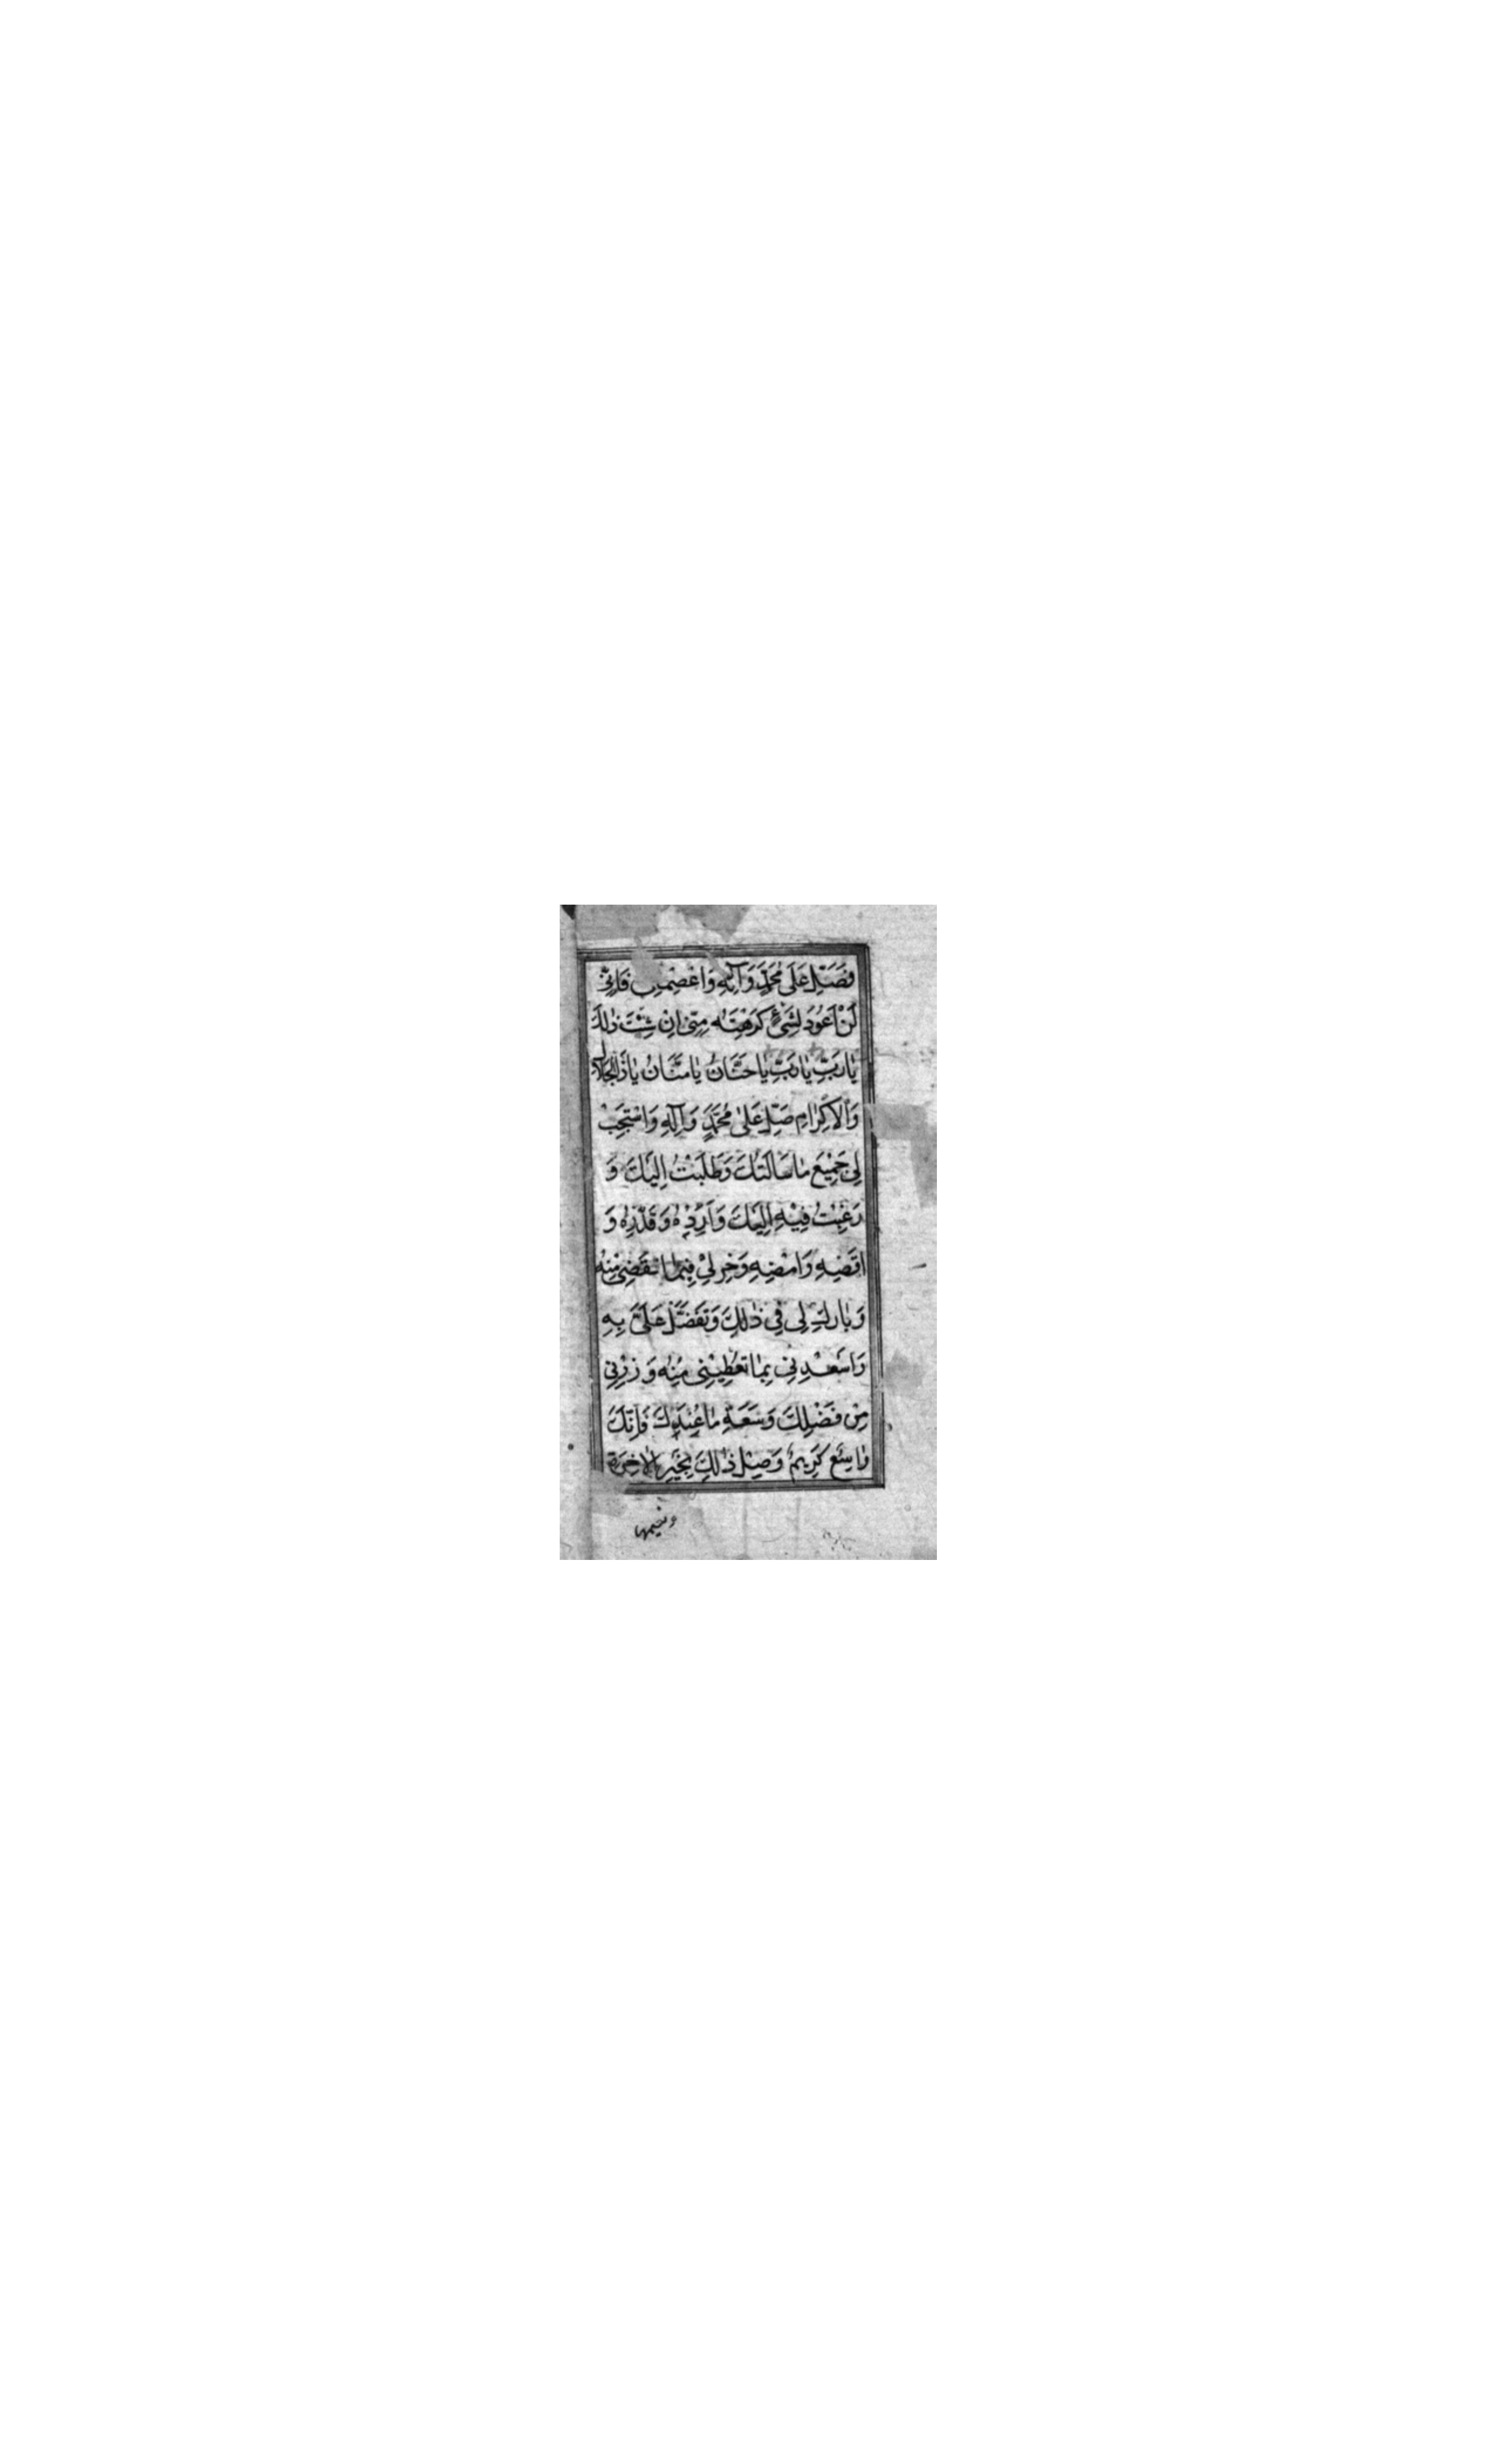 فَصَلِّ عَلَى مُحَمَّدٍ وَآلِهِ وَاعْصِمْنِي فَاِنِّي
لَنْ اَعُوْدَ لِشَيْءٍ كَرِهْتَهُ مِنِّي اِنْ شِئْتَ ذٰلِكَ
يٰا رَبِّ يٰا رَبِّ يٰا حَنَّانُ يٰا مَنَّانُ يٰا ذَالْجَلَالِ
وَالْاِكْرٰامِ صَلِّ عَلىٰ مُحَمَّدٍ وَآلِهِ وَاسْتَجِبْ
لِي جَمِيْعَ مٰا سَاَلْتُكَ وَطَلَبْتُ اِلَيْكَ وَ
رَغِبْتُ فِيْهِ اِلَيْكَ وَاَرِدْهُ وَقَدِّرْهُ وَ
اقْضِهِ وَامْضِهِ وَخِرْ لِيْ فِيْمٰا تَقْضِي مِنْهُ
وَبٰارِكْ لِي فِي ذٰلِكَ وَتَفَضَّلْ عَلَيَّ بِهِ
وَاَسْعِدْنِي بِمٰا تُعْطِيْنِي مِنْهُ وَزِدْنِي
مِنْ فَضْلِكَ وَسَعَةِ مٰا عِنْدَكَ فَاِنَّكَ
وٰاسِعٌ كَرِيمٌ وَصِلْ ذٰلِكَ بِخَيْرِ الْاٰخِرَةِ
ونعيمها